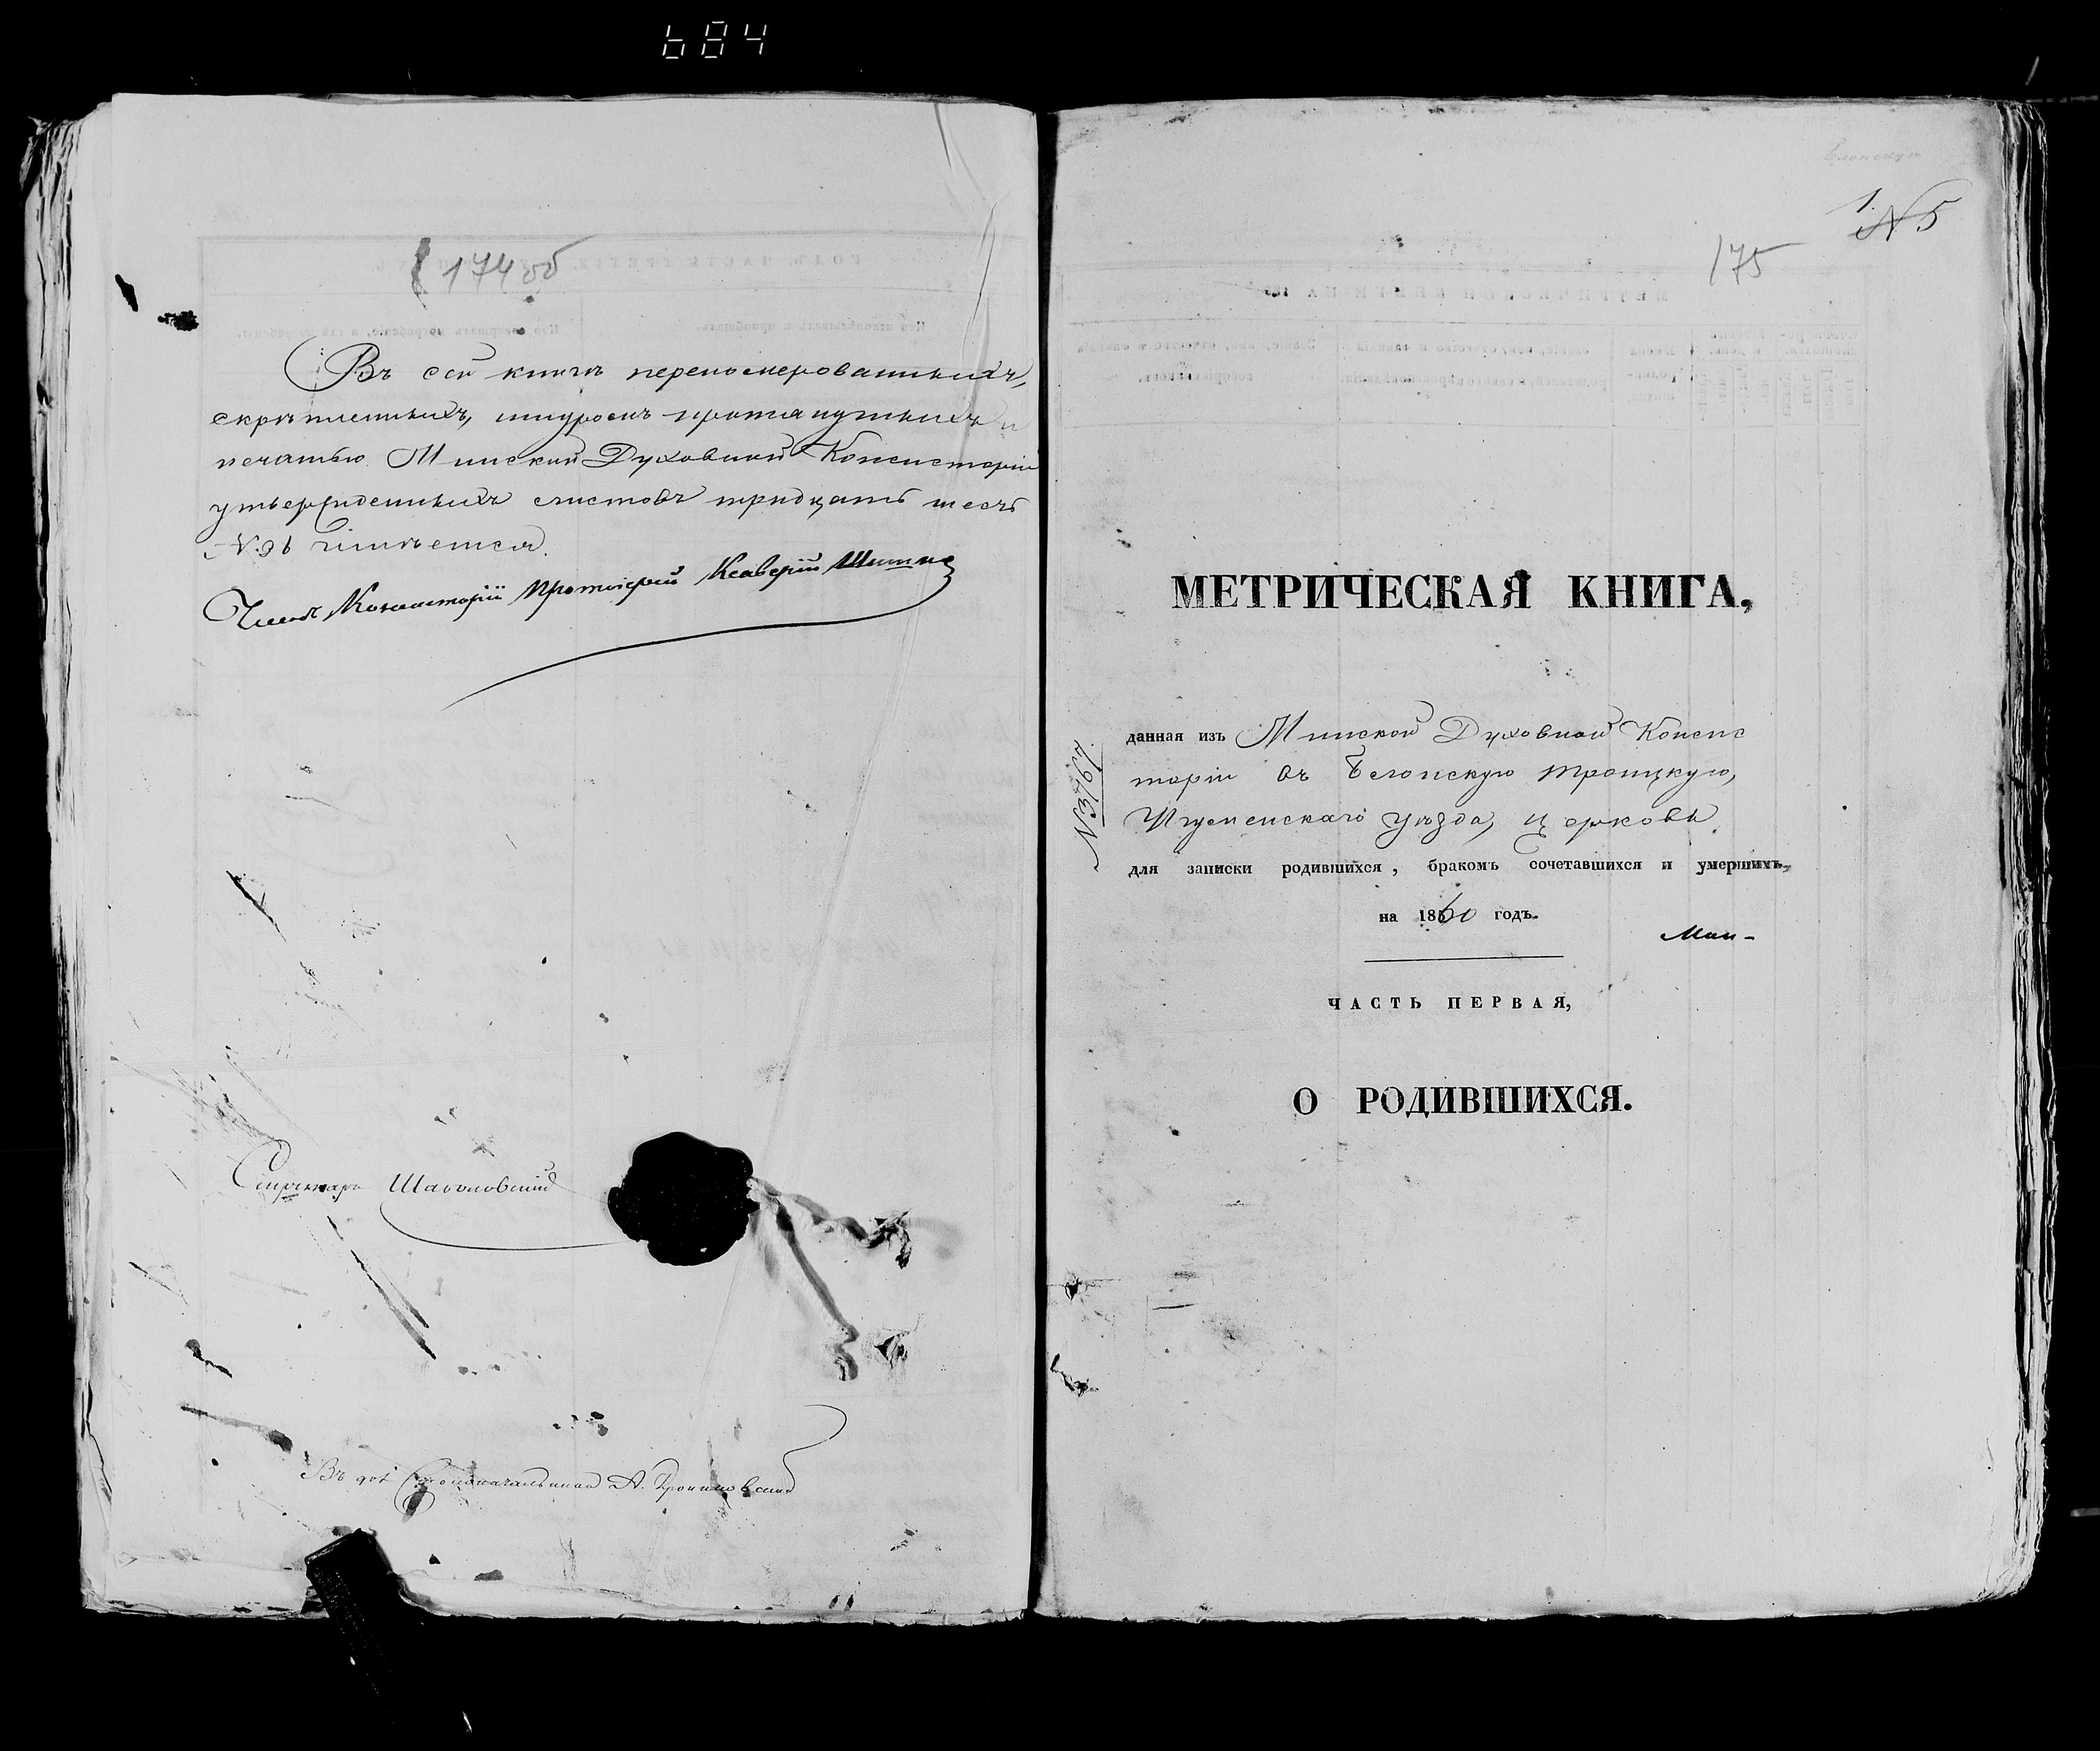 684
174 об
Въ сей книгѣ перенумерованныхъ,
скрѣпленныхъ, шнуромъ протянутыхъ и
печатью Минской Духовной Консисторіи
утвержденныхъ листовъ тридцать шесть
№ 36 имѣется.
Членъ Консисторіи Протоіерей Ксаверій
Секретарь
Въ дол. Столоначальника А.
1. № 5
175
МЕТРИЧЕСКАЯ КНИГА,
данная изъ Минской Духовной Консис
торіи въ Блонскую Троицкую,
Игуменскаго уѣзда, церковь
№ 3767.
для записки родившихся, бракомъ сочетавшихся и умершихъ,
на 1860 годъ.
Мин-
ЧАСТЬ ПЕРВАЯ,
О РОДИВШИХСЯ.